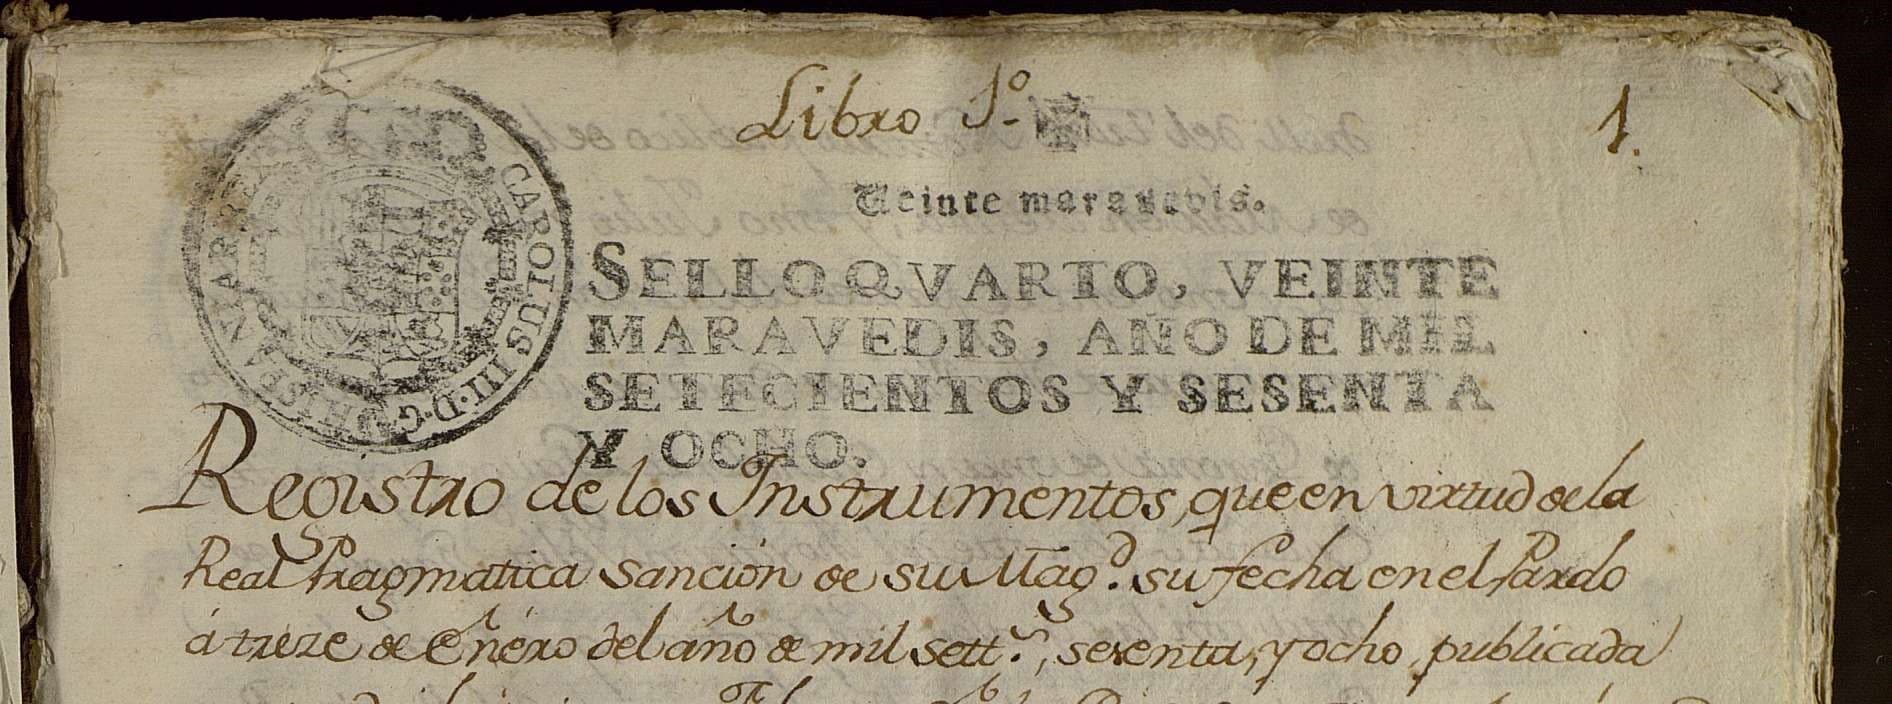 Libro 1º.
1.
Veinte maravedis.
CAROLUS III·D·G·HISPANIAR REX
SELLO QVARTO, VEINTE
MARAVEDIS, AÑO DE MIL
SETECIENTOS Y SESENTA
Y OCHO.
Registro de los Instrumentos, que en virtud de la
Real Pragmatica sanción de su Magᵈ. su fecha en el Pardo
á treze de Enéro del año de mil settˢ., sesenta, y ocho, publicada